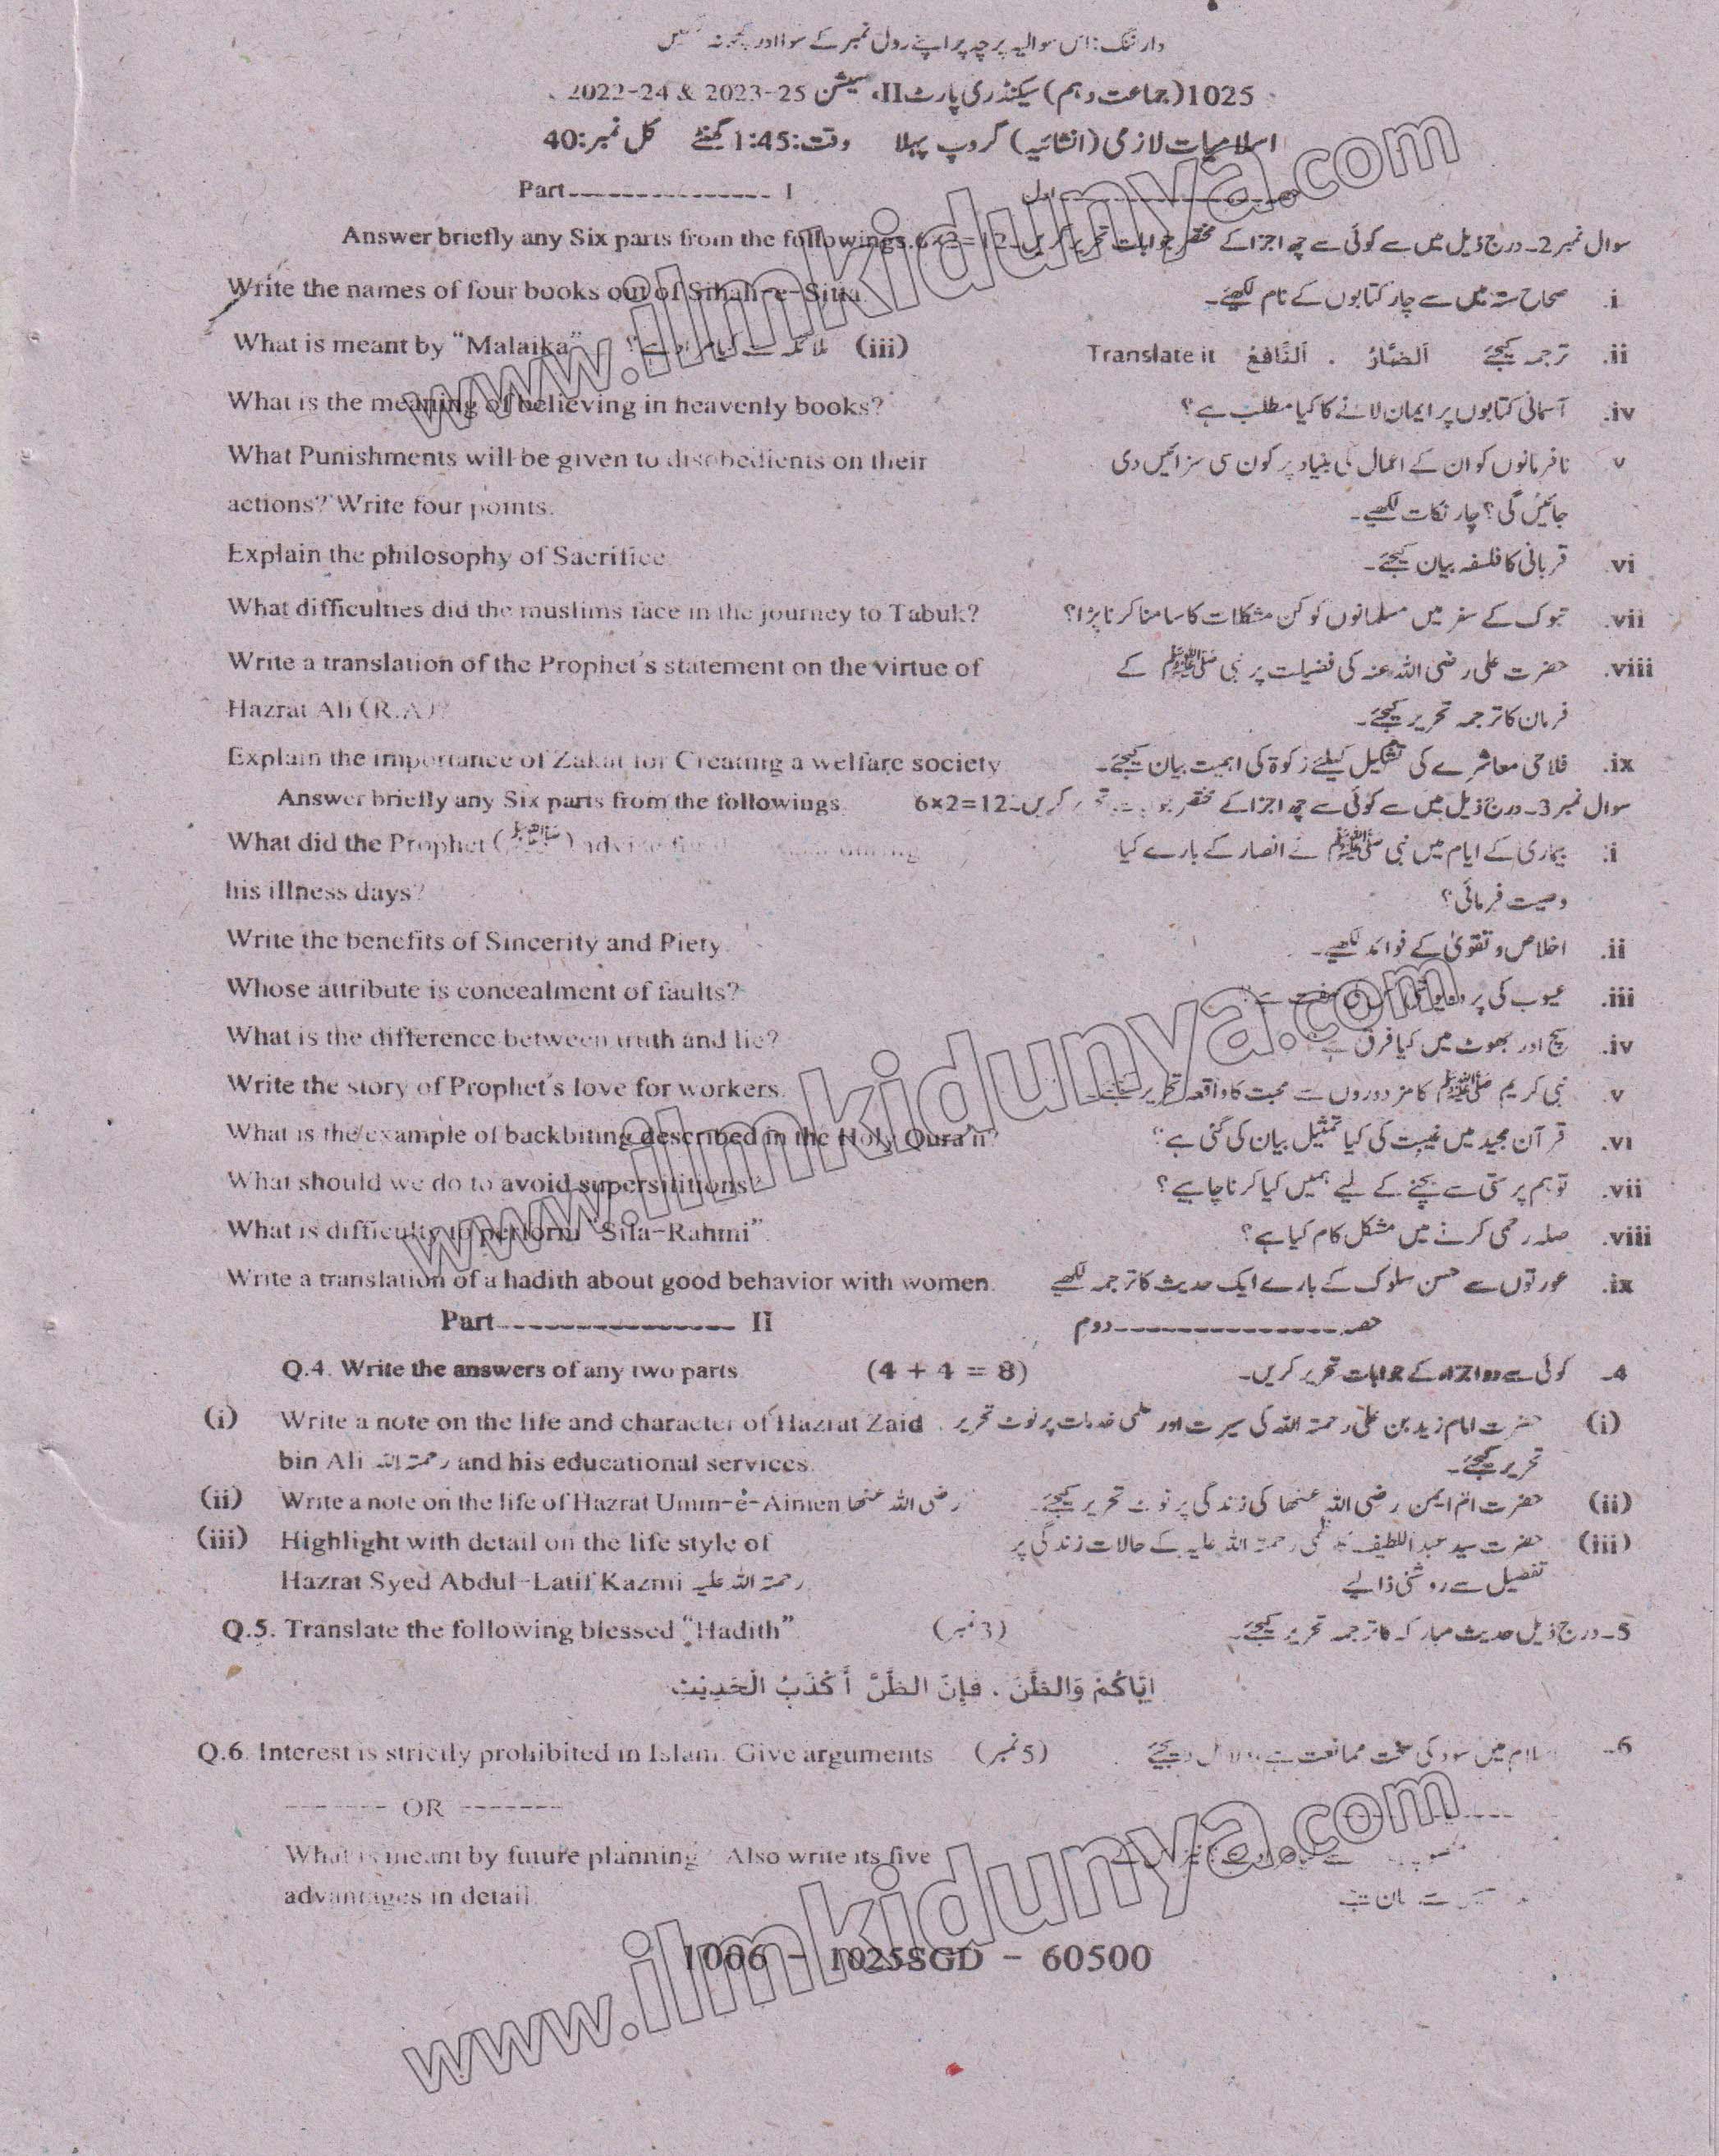 وارننگ: اس سوالیہ پرچہ پر اپنے رول نمبر کے سوا اور کچھ نہ لکھیں
1025(جماعت دہم) سیکنڈری پارٹ II، سیشن 2023-25 & 2022-24
اسلامیات لازمی (انشائیہ) گروپ پہلا وقت: 1:45 گھنٹے کل نمبر: 40
Part---------------- I اول
Answer briefly any Six parts from the followings. 6×2=12 سوال نمبر 2۔ درج ذیل میں سے کوئی سے چھ اجزا کے مختصر جوابات تحریر کریں۔
Write the names of four books out of Sihah-e-Sitta. i. صحاح ستہ میں سے چار کتابوں کے نام لکھیے۔
What is meant by “Malaika” (iii) ملائکہ سے ؟ Translate it اَلضَّارُ . اَلنَّافِعُ ترجمہ کیجئے ii.
What is the meaning of believing in heavenly books? iv. آسمانی کتابوں پر ایمان لانے کا کیا مطلب ہے؟
What Punishments will be given to disobedients on their v نافرمانوں کو ان کے اعمال کی بنیاد پر کون سی سزائیں دی
actions? Write four points. جائیں گی؟ چار نکات لکھیے۔
Explain the philosophy of Sacrifice vi. قربانی کا فلسفہ بیان کیجئے۔
What difficulties did the muslims face in the journey to Tabuk? vii. تبوک کے سفر میں مسلمانوں کو کن مشکلات کا سامنا کرنا پڑا؟
Write a translation of the Prophet's statement on the virtue of viii. حضرت علی رضی اللہ عنہ کی فضیلت پر نبی ﷺ کے
Hazrat Ali (R.A)? فرمان کا ترجمہ تحریر کیجئے۔
Explain the importance of Zakat for Creating a welfare society ix. فلاحی معاشرے کی تشکیل کیلئے زکوۃ کی اہمیت بیان کیجئے۔
Answer briefly any Six parts from the followings. 6×2=12 سوال نمبر 3۔ درج ذیل میں سے کوئی سے چھ اجزا کے مختصر جوابات تحریر کریں۔
What did the Prophet (ﷺ) during i. بیماری کے ایام میں نبی ﷺ نے انصار کے بارے کیا
his illness days? وصیت فرمائی؟
Write the benefits of Sincerity and Piety. ii. اخلاص و تقویٰ کے فوائد لکھیے۔
Whose attribute is concealment of faults? iii. عیوب کی پردہ پوشی صفت ہے
What is the difference between truth and lie? iv. سچ اور جھوٹ میں کیا فرق ہے
Write the story of Prophet's love for workers. v. نبی کریم ﷺ کا مزدوروں سے محبت کا واقعہ تحریر کیجئے۔
What is the example of backbiting described in the Holy Qura'n? vi. قرآن مجید میں غیبت کی کیا تمثیل بیان کی گئی ہے؟
What should we do to avoid supersititions? vii. توہم پرستی سے بچنے کے لیے ہمیں کیا کرنا چاہیے؟
What is difficulty to perform “Sila-Rahmi”. viii. صلہ رحمی کرنے میں مشکل کام کیا ہے؟
Write a translation of a hadith about good behavior with women. ix. عورتوں سے حسن سلوک کے بارے ایک حدیث کا ترجمہ لکھیے
Part------------------ II حصہ------------------دوم
Q.4. Write the answers of any two parts. (4 + 4 = 8) 4۔ کوئی سے دو اجزاء کے جوابات تحریر کریں۔
(i) Write a note on the life and character of Hazrat Zaid (i) حضرت امام زید بن علی رحمۃ اللہ کی سیرت اور علمی خدمات پر نوٹ تحریر
bin Ali رحمۃ اللہ and his educational services. تحریر کیجئے۔
(ii) Write a note on the life of Hazrat Umm-e-Aimen رضی اللہ عنھا (ii) حضرت ام ایمن رضی اللہ عنھا کی زندگی پر نوٹ تحریر کیجئے۔
(iii) Highlight with detail on the life style of (iii) حضرت سید عبداللطیف کاظمی رحمۃ اللہ علیہ کے حالات زندگی پر
Hazrat Syed Abdul-Latif Kazmi رحمۃ اللہ علیہ. تفصیل سے روشنی ڈالیے
Q.5. Translate the following blessed “Hadith” (3 نمبر) 5۔ درج ذیل حدیث مبارکہ کا ترجمہ تحریر کیجئے۔
اِیَّاکُمْ وَالظَّنَّ ، فَاِنَّ الظَّنَّ أَکْذَبُ الْحَدِیْثِ
Q.6. Interest is strictly prohibited in Islam. Give arguments (5 نمبر) 6۔ اسلام میں سود کی سخت ممانعت ہے، دلائل دیجئے
------- OR -------
What is meant by future planning? Also write its five
advantages in detail.
1006 - 1025SGD - 60500
www.ilmkidunya.com
www.ilmkidunya.com
www.ilmkidunya.com